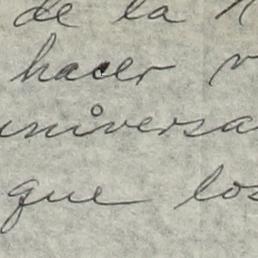 de la
hacer
universa
que los